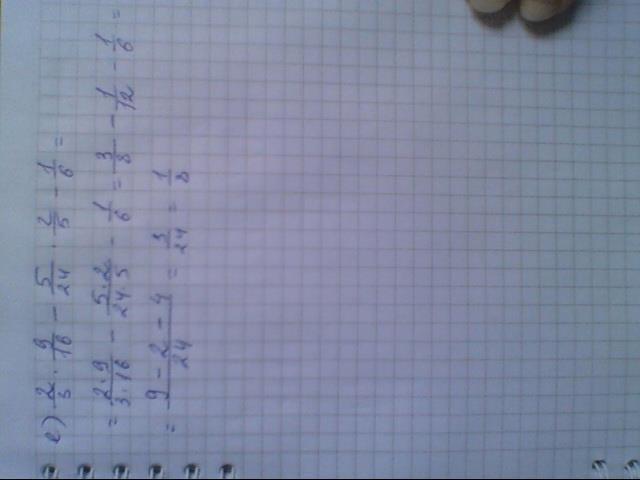 е) 2/3 · 9/16 − 5/24 · 2/5 − 1/6 =
= 2·9/3·16 − 5·2/24·5 − 1/6 = 3/8 − 1/12 − 1/6 =
= 9 − 2 − 4/24 = 3/24 = 1/8